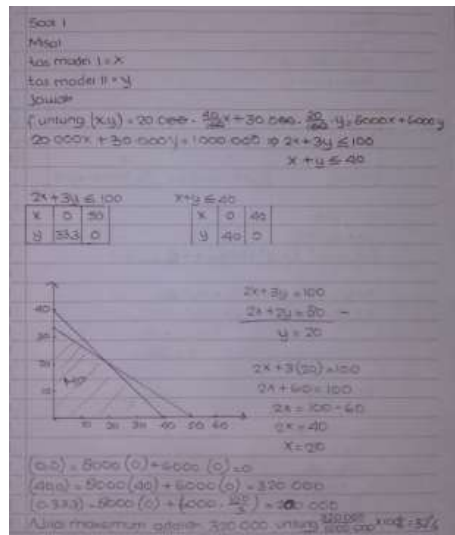 Soal 1
Misal
tas model I = x
tas model II = y
Jawab
f untung (x,y) = 20.000 . 40/100 x + 30.000 . 20/100 . y = 8000x + 6000y
20.000x + 30.000y = 1000.000 ⇒ 2x + 3y ≤ 100
x + y ≤ 40
2x + 3y ≤ 100 x + y ≤ 40
x 0 50 x 0 40
y 33.3 0 y 40 0
2x + 3y = 100
2x + 2y = 80 -
y = 20
2x + 3(20) = 100
2x + 60 = 100
2x = 100 - 60
2x = 40
x = 20
40
30
20
10
HP
10 20 30 40 50 60
(0.0) = 8000 (0) + 6000 (0) = 0
(40.0) = 8000 (40) + 6000 (0) = 320.000
(0.33.3) = 8000 (0) + 6000 . 100/3) = 200.000
Nilai maksimum adalah 320.000 untung 320.000/1000.000 x 100% = 32%